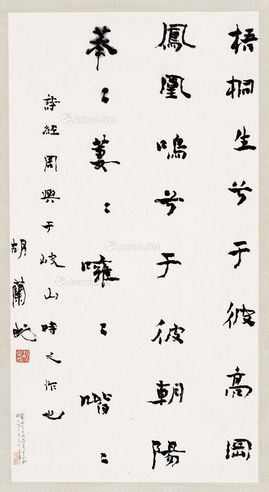 梧桐生兮于彼高岡
鳳凰鳴兮于彼朝陽
菶〻萋〻噰〻喈〻
詩經周興于岐山時之作也
胡蘭成